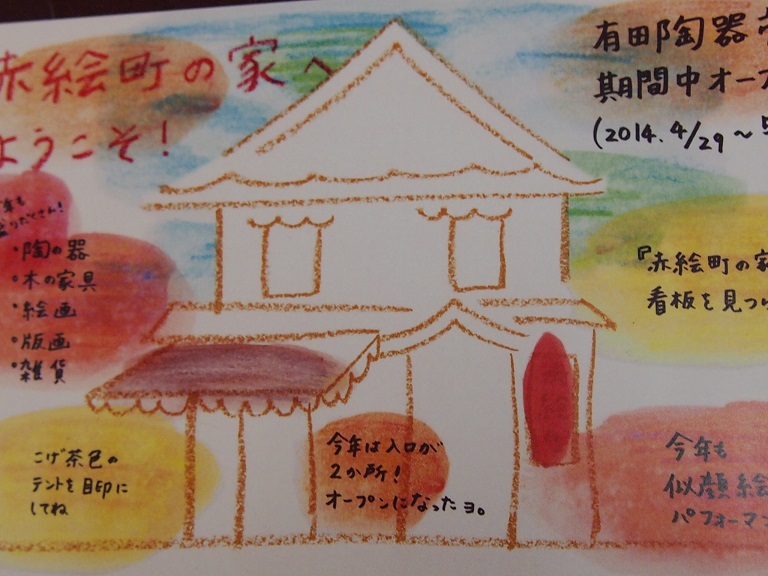 赤絵町の家へ
ようこそ!
有田陶器
期間中オープ
(2014.4/29〜5
今年も
盛りだくさん!
・陶の器
・木の家具
・絵画
・版画
・雑貨
『赤絵町の家
看板を見つ
こげ茶色の
テントを目印に
してね
今年は入口が
2か所!
オープンになったヨ。
今年も
似顔絵
パフォーマン